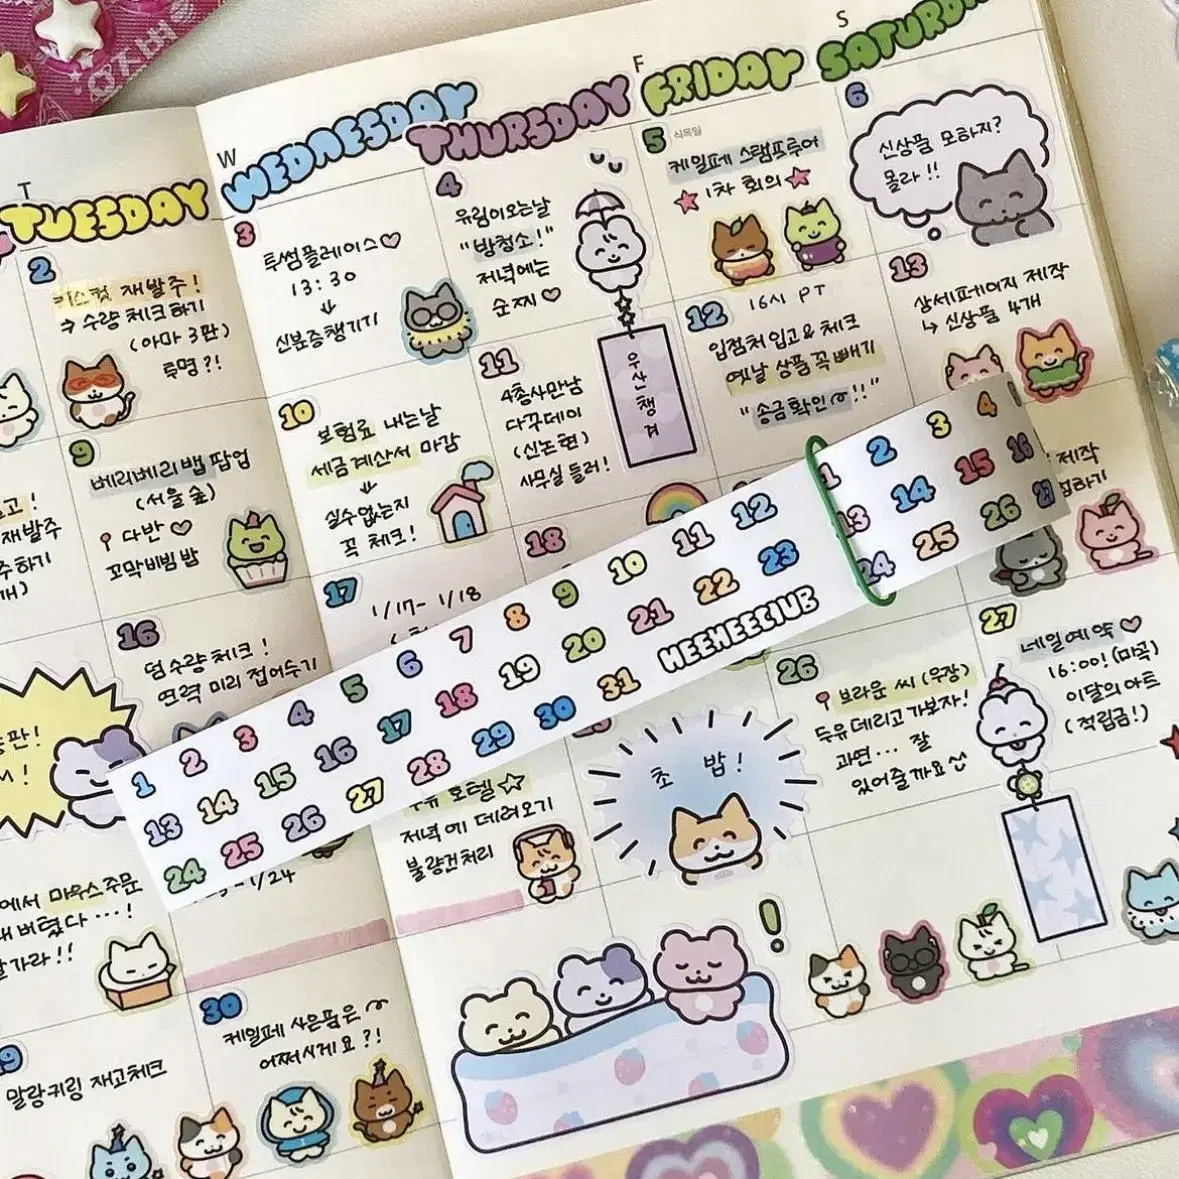 S
F
W
T
SATURDA
FRIDAY
THURSDAY
WEDNESDAY
TUESDAY
2
재발주!
→ 수량 체크하기
(아마 3판)
투명?!
3
투썸플레이스♡
13:30
↓
신분증챙기기
4
유림이오는날
"방청소!"
저녁에는
순찌♡
우산챙겨
5
식목일
케일페 스탬프투어
★ 1차 회의 ★
6
신상품 모하지?
몰라!!
9
베리베리뱁 팝업
(서울숲)
다반♡
꼬막비빔밥
10
보험료 내는날
세금계산서 마감
↓
실수없는지
꼭 체크!
11
4층사만남
다꾸데이
(신논현)
사무실 들러!
12
16시 PT
입점처입고&체크
옛날 상품 꼭 빼기
"송금확인!!"
13
상세페이지 제작
↳ 신상품 4개
제작
16
덤 수량체크!
연력 미리 접어두기
17
1/17- 1/18
18
고!
재발주
판!
26
브라운 씨 (우장)
두유 데리고 가보자!
과연... 잘
있어줄까요
27
네일예약♡
16:00! (미곡)
이달의아트
(적립금!)
1 2 3 4 5 6 7 8 9 10 11 12
13 14 15 16 17 18 19 20 21 22 23
24 25 26 27 28 29 30 31 HEEHEECLUB
1 2 3 4
13 14 15 16
24 25 26 27
호텔☆
저녁에 데려오기
불량건처리
초 밥!
!
에서 마우스주문
-1/24
30
케일페 사은품은
어쩌시게요?!
말랑키링 재고체크